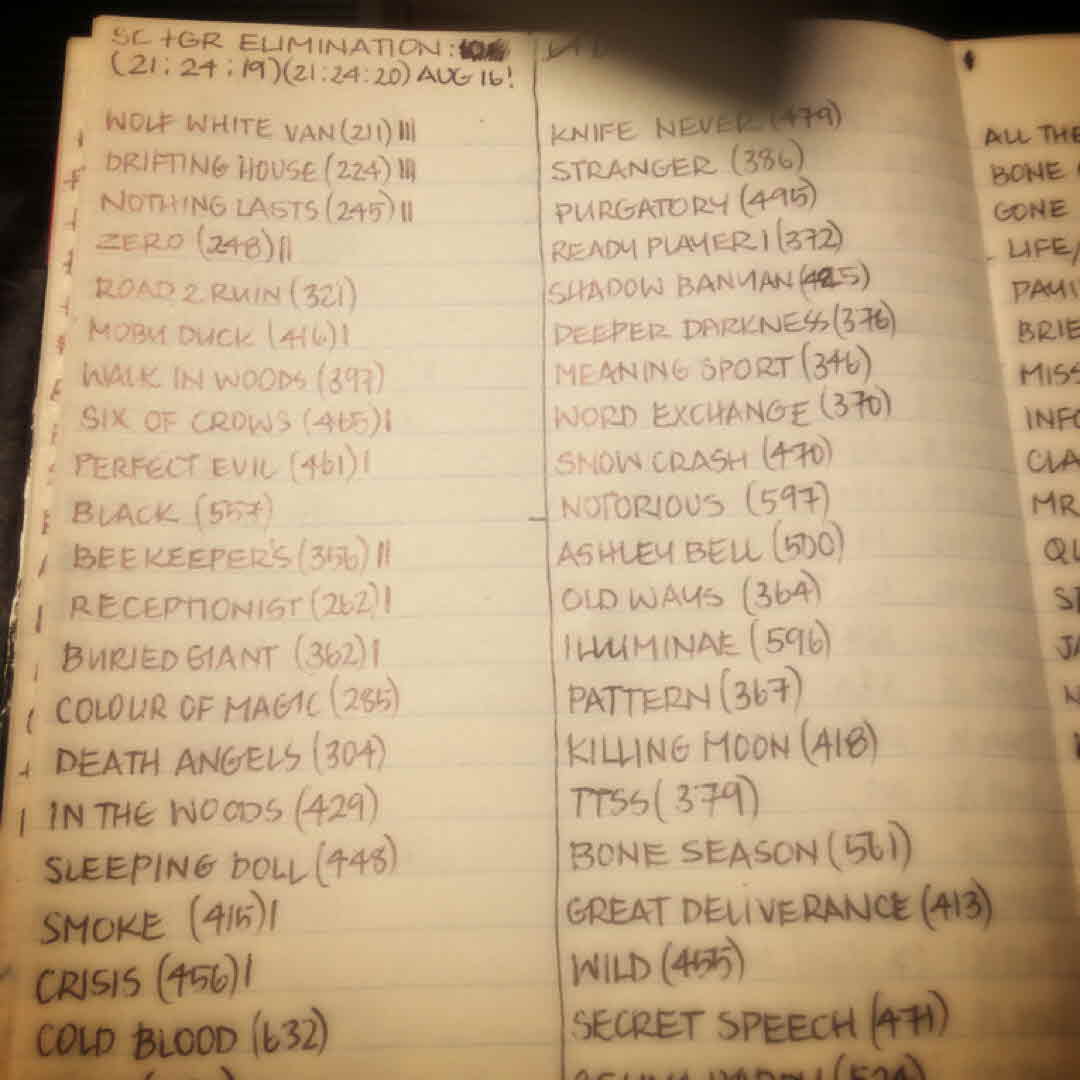 SC + GR ELIMINATION:
(21:24:19)(21:24:20) AUG 16!
WOLF WHITE VAN (211) III
DRIFTING HOUSE (224) III
NOTHING LASTS (245) II
ZERO (248) II
ROAD 2 RUIN (321)
MOBY DUCK (416) I
WALK IN WOODS (397)
SIX OF CROWS (465) I
PERFECT EVIL (461) I
BLACK (557)
BEEKEEPER'S (356) II
RECEPTIONIST (262) I
BURIED GIANT (362) I
COLOUR OF MAGIC (285)
DEATH ANGELS (304)
IN THE WOODS (429)
SLEEPING DOLL (448)
SMOKE (415) I
CRISIS (456) I
COLD BLOOD (632)
KNIFE NEVER (479)
STRANGER (386)
PURGATORY (495)
READY PLAYER 1 (372)
SHADOW BANYAN (425)
DEEPER DARKNESS (376)
MEANING SPORT (346)
WORD EXCHANGE (370)
SNOW CRASH (470)
NOTORIOUS (597)
ASHLEY BELL (500)
OLD WAYS (364)
ILLUMINAE (596)
PATTERN (367)
KILLING MOON (418)
TTSS (379)
BONE SEASON (561)
GREAT DELIVERANCE (413)
WILD (455)
SECRET SPEECH (471)
ALL THE
BONE
GONE
LIFE/
BRIE
MISS
INFO
CLA
MR